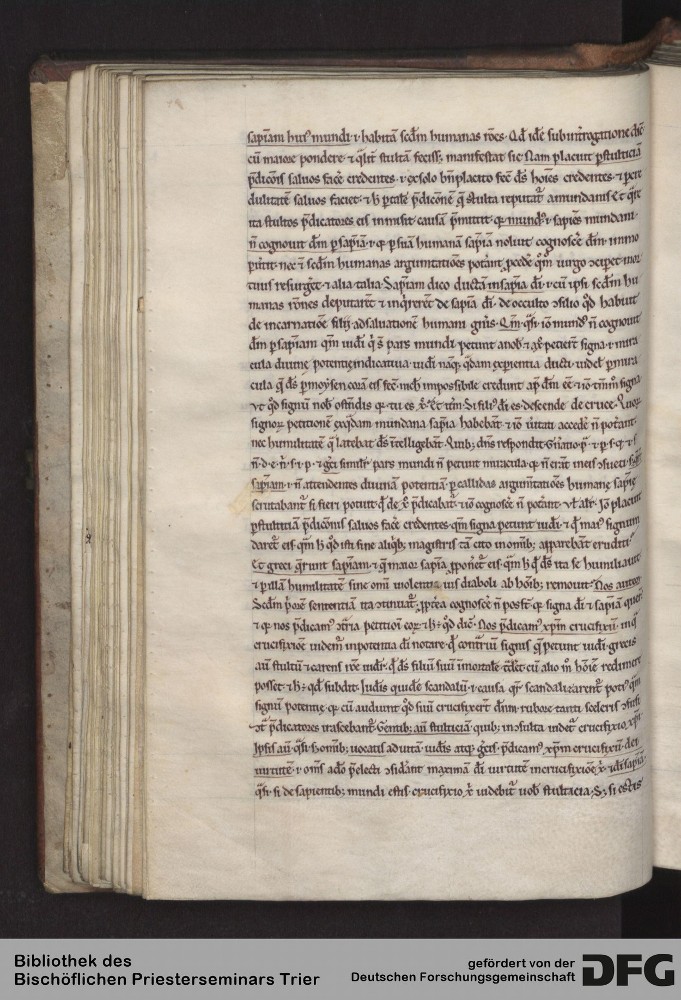 sapiam hui' mundi · i · habita scdm humanas roes · Qd ide subinrrogatione dic
cu maiore pondere · & qlit stulta fecist; manifestat sic · Nam placuit p stulticia
pdicois saluos face credentes · i · ex solo bnplacito fec ds hoies credentes · & p cre
dulitate saluos faciet · & h p tale pdicone q stulta reputat a mundanis · Et qre
ita stultos pdicatores eis inmisit causa pmittit · qr mund' · i · sapies mundani ·
n cognouit dm p sapia · i · qr p sua humana sapia noluit cognosce dm · immo
scdm humanas argumtatioes potant
tuus resurget · & alia talia · Sapiam dico ducta in sapia di · i · cu ipsi scdm hu
manas rones deputaret & inqreret de sapia di · de occulto silio qd habuit
de incarnatioe filii ad saluatione humani gnis · Qm qsi · io mund' n cognouit
dm p sapiam qm iudi q s pars mundi petunt a nob & a xpo petiert signa · i · mira
cula diuine potentie indicatiua · iudi naq qdam expientia ducti · uidel p mira
cula q ds p moysen cora eis fec · nich impossibile credunt ap dm ee · & io tmm signa
Vt qd signu nob ostdis qr tu es xc · Et itm · Si fili' di es descende de cruce · Quor
signor petitione ex qdam mundana sapia habebat & io uitati accede n potant
nec humilitate q latebat ds itelligebat · Quib; dns respondit · Gnatio p · & p · s · q · & s
n · d · e · n · s · i · p · & greci simile pars mundi n petunt miracula · qr n erat in eis sueti · sed
sapiam · i · n attendentes diuina potentia p callidas argumtatioes humane sapie
scrutabant si fieri potuit q de xpo pdicabat · & io cognosce n potant · Vl alit · Io placuit
p stulticia pdiconis saluos face credentes · qm signa petunt iudi · & q mai' signum
daret eis · qm h qd isti sine aliqb; magistris ta cito in omib; apparebat eruditi ·
Et greci qrunt sapiam · & q maior sapia pponet eis · qm h q ds ita se humiliauit
& p illa humilitate sine omi uiolentia ius diaboli ab hoib; remouit · Nos autem
Scdm pore sententia ita tinuat · pptea cognosce n post · qr signa di & sapia quer
& qr nos pdicam' tria petitioi eor · & h · qd dic · Nos pdicam' xpm crucifixu · in q
crucifixioe uidem inpotentia di notare · q contriu signis q petunt iudi · grecis
au stultu & carens roe uidt · q ds filiu suu imortale cu alio m hoiem redimere
posset · & h · qd subdit · Iudis quide scandalu · & causa qr scandalizarent poti' qm
signu potentie · qr cu audiunt qd suu crucifixert dnm · rubore tanti sceleris fusi
pdicatores irascebant · Gentib; au stulticia · quib; insulsa uidet crucifixio xpi
Ipsis au · qsi · h omib; uocatis ad uita · iudis atq grecis · pdicam' xpm crucifixu dei
uirtute · i · oms a do pelecti sidant maxima di uirtute in crucifixioe xpi · & di sapia
qsi · si de sapientib; mundi estis · crucifixio xpi uidebit uob stulticia · S; si estis
Bibliothek des
Bischöflichen Priesterseminars Trier
gefördert von der
Deutschen Forschungsgemeinschaft
DFG